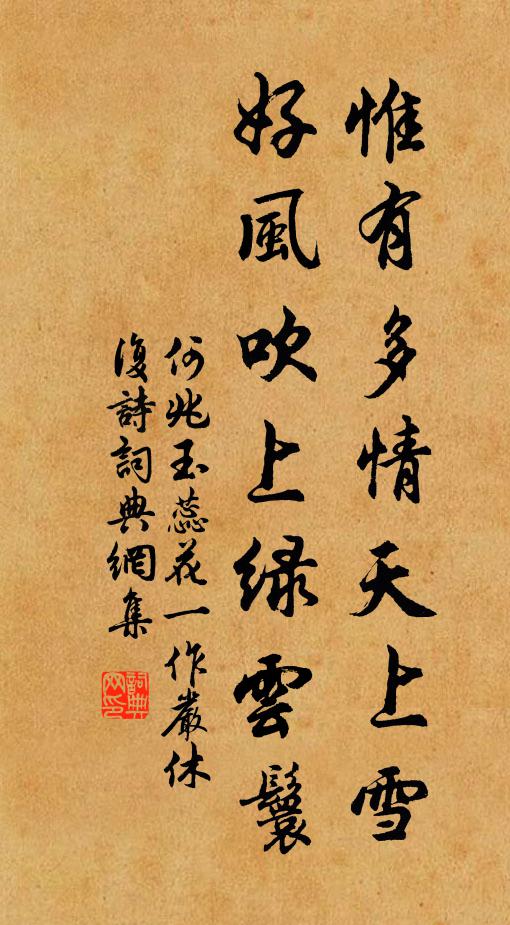 惟有多情天上雪
好風吹上緑雲鬟
何兆玉蕊花一作嚴休
復詩詞典網集
詞典网印